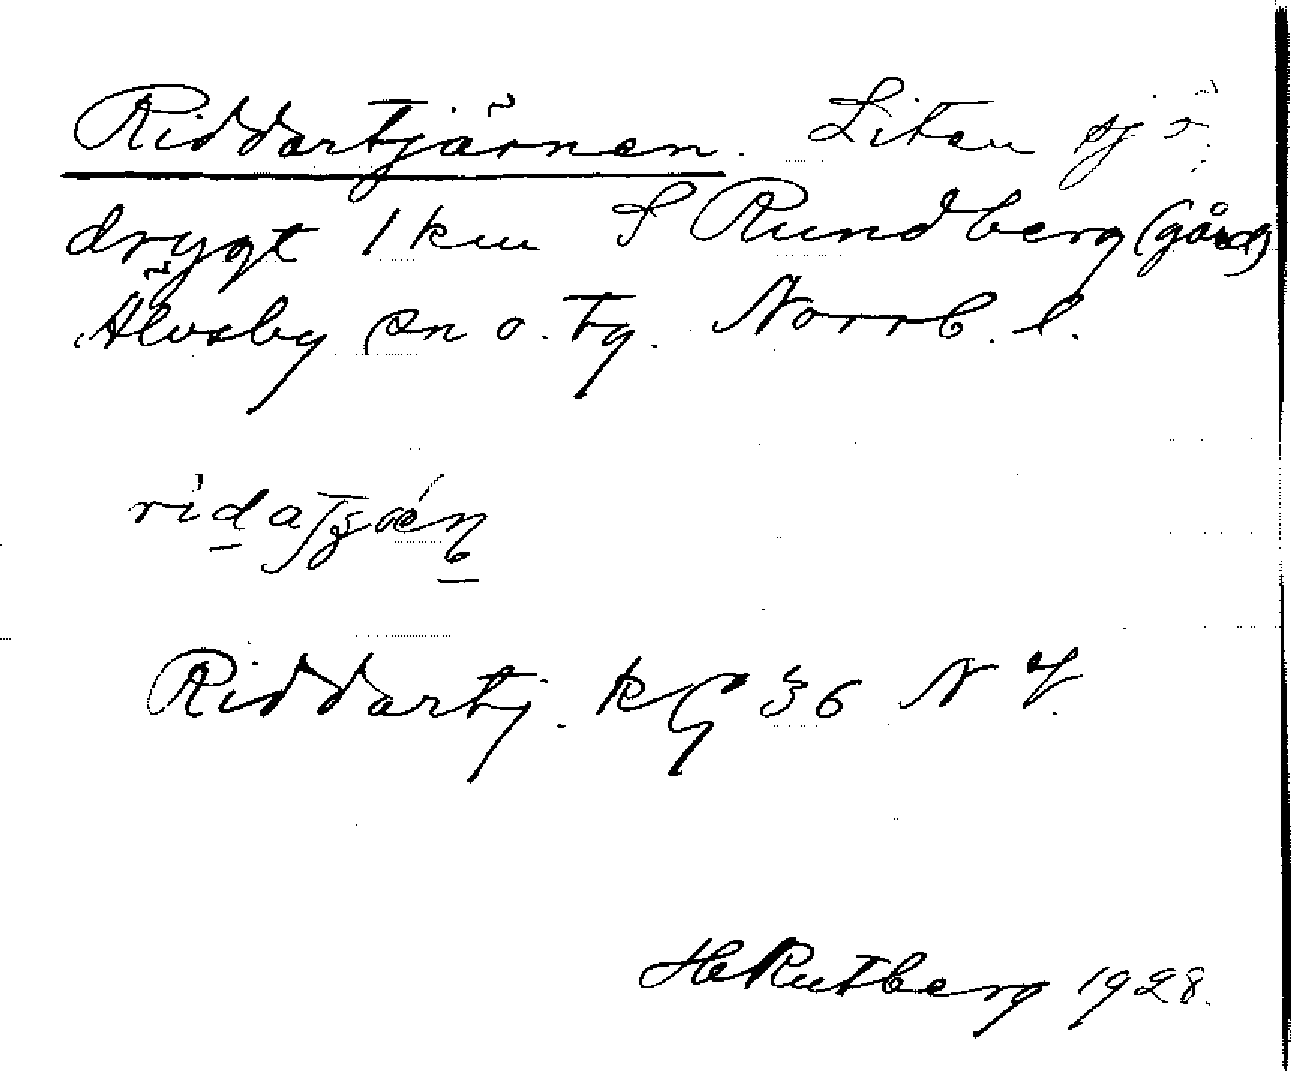 Riddartjärnen. Liten sjö
drygt 1 km S Rundberg (gård)
Älvsby sn o. tg. Norrb. l.
Riddartj. kG 36 NV.
H Rutberg 1928.